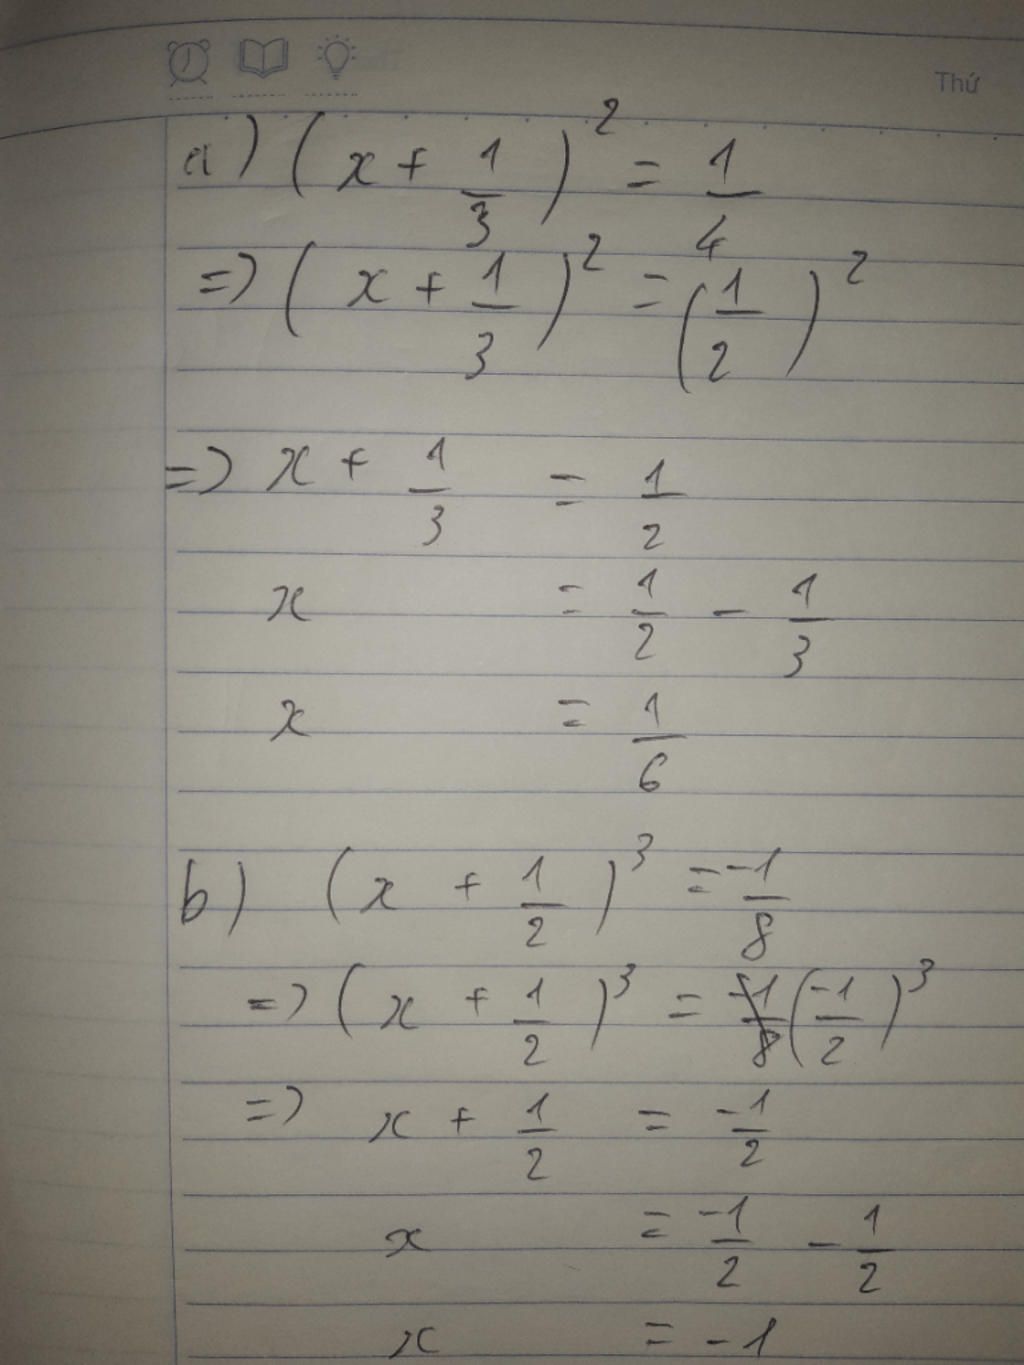 Thứ
a) (x + 1/3)² = 1/4
=> (x + 1/3)² = (1/2)²
=> x + 1/3 = 1/2
x = 1/2 - 1/3
x = 1/6
b) (x + 1/2)³ = -1/8
=> (x + 1/2)³ = -1/8 (-1/2)³
=> x + 1/2 = -1/2
x = -1/2 - 1/2
x = -1